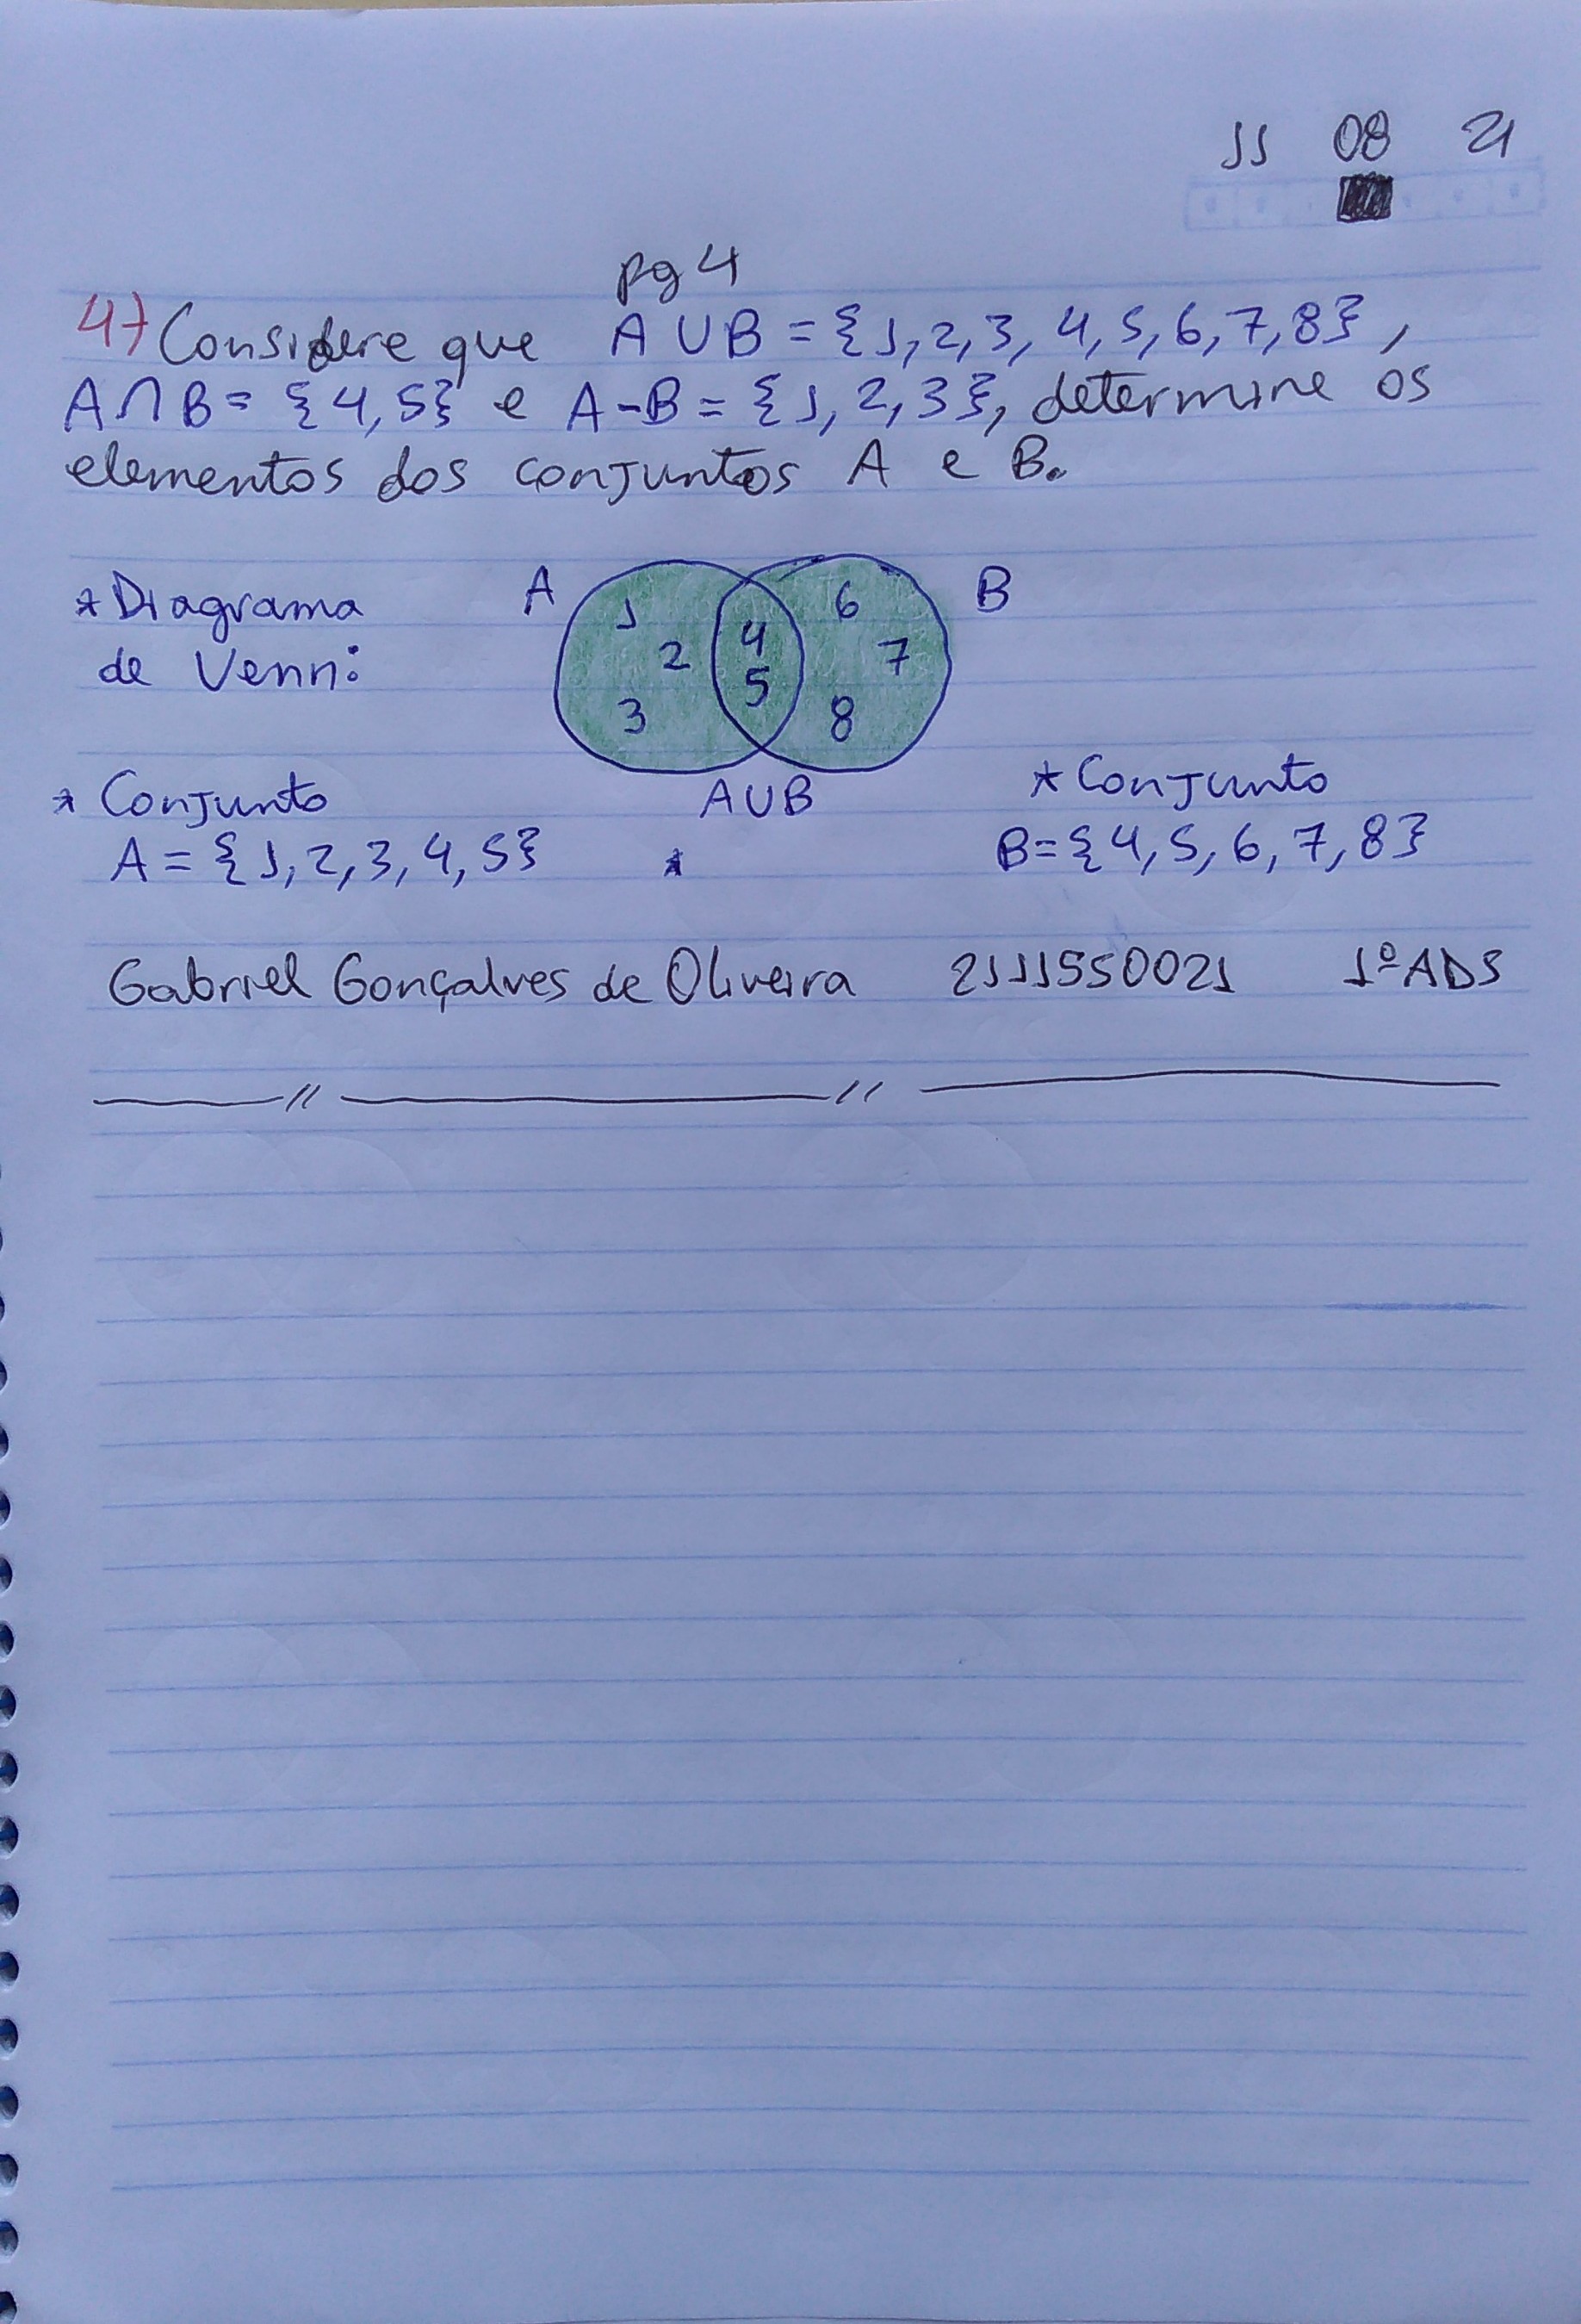 11 08 21
pg 4
4) Considere que A ∪ B = {1, 2, 3, 4, 5, 6, 7, 8},
A ∩ B = {4, 5} e A - B = {1, 2, 3}, determine os
elementos dos conjuntos A e B.
* Diagrama
de Venn:
A
1
2
3
4
5
6
7
8
B
A ∪ B
* Conjunto
A = {1, 2, 3, 4, 5}
* Conjunto
B = {4, 5, 6, 7, 8}
Gabriel Gonçalves de Oliveira 2111550021 1º ADS